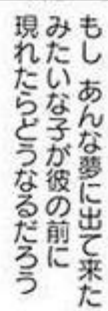 もし あんな夢に出て来た
みたいな子が彼の前に
現れたらどうなるだろう